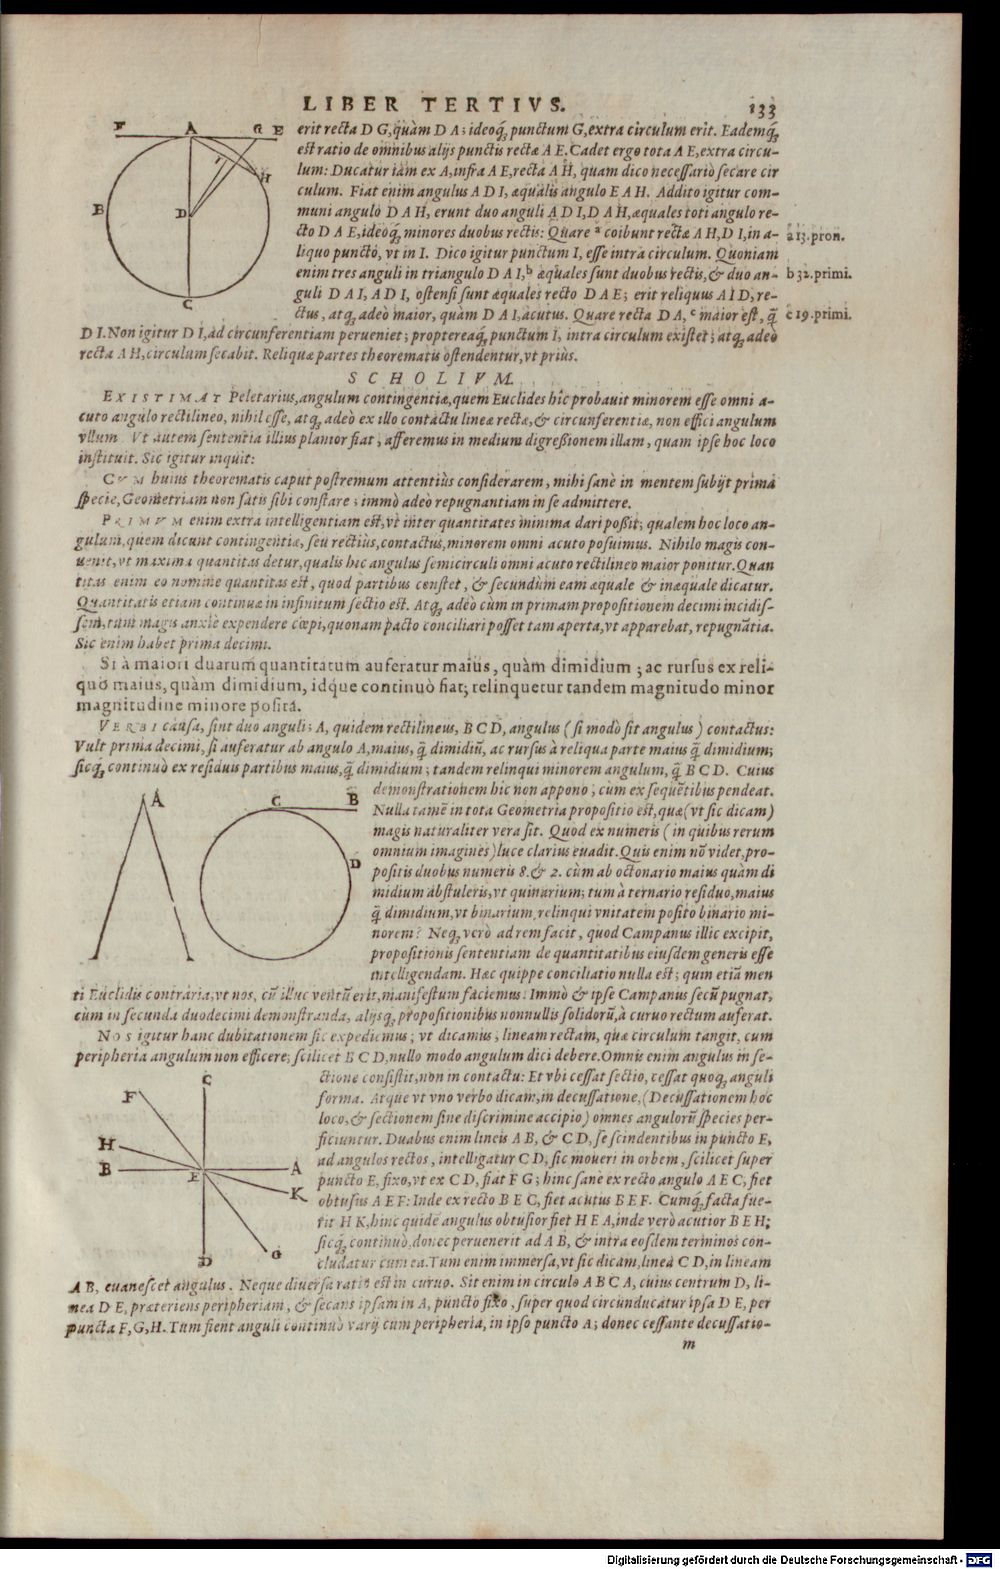 LIBER TERTIVS. 133
F A G E
H
B D
C
erit recta D G, quàm D A; ideoq́; punctum G, extra circulum erit. Eademq́;
est ratio de omnibus alijs punctis rectæ A E. Cadet ergo tota A E, extra circu-
lum: Ducatur iam ex A, infra A E, recta A H, quam dico necessariò secare cir
culum. Fiat enim angulus A D I, æqualis angulo E A H. Addito igitur com-
muni angulo D A H, erunt duo anguli A D I, D A H, æquales toti angulo re-
cto D A E, ideoq́; minores duobus rectis: Quare ᵃ coibunt rectæ A H, D I, in a-
a 13. pron.
liquo puncto, vt in I. Dico igitur punctum I, esse intra circulum. Quoniam
enim tres anguli in triangulo D A I, ᵇ æquales sunt duobus rectis, & duo an-
b 32. primi.
guli D A I, A D I, ostensi sunt æquales recto D A E; erit reliquus A I D, re-
ctus, atq́; adeò maior, quàm D A I, acutus. Quare recta D A, ᶜ maior est, q̃
c 19. primi.
D I. Non igitur D I, ad circunferentiam perueniet; proptereaq́; punctum I, intra circulum existet; atq́; adeò
recta A H, circulum secabit. Reliquæ partes theorematis ostendentur, vt priùs.
SCHOLIVM.
EXISTIMAT Peletarius, angulum contingentiæ, quem Euclides hîc probauit minorem esse omni a-
cuto angulo rectilineo, nihil esse, atq́; adeò ex illo contactu lineæ rectæ, & circunferentiæ, non effici angulum
vllum. Vt autem sententia illius planior fiat, afferemus in medium digressionem illam, quam ipse hoc loco
instituit. Sic igitur inquit:
CVM huius theorematis caput postremum attentiùs considerarem, mihi sanè in mentem subijt prima
specie, Geometriam non satis sibi constare; immò adeò repugnantiam in se admittere.
PRIMVM enim extra intelligentiam est, vt inter quantitates minima dari possit; qualem hoc loco an-
gulum, quem dicunt contingentiæ, seu rectiùs, contactus, minorem omni acuto posuimus. Nihilo magis con-
uenit, vt maxima quantitas detur, qualis hic angulus semicirculi omni acuto rectilineo maior ponitur. Quan
titas enim eo nomine quantitas est, quod partibus constet, & secundùm eam æquale & inæquale dicatur.
Quantitatis etiam continuæ in infinitum sectio est. Atq́; adeò cùm in primam propositionem decimi incidis-
sem, tum magis anxiè expendere cœpi, quonam pacto conciliari posset tam aperta, vt apparebat, repugnãtia.
Sic enim habet prima decimi.
Si à maiori duarum quantitatum auferatur maius, quàm dimidium; ac rursus ex reli-
quo maius, quàm dimidium, idque continuò fiat; relinquetur tandem magnitudo minor
magnitudine minore posita.
VERBI causa, sint duo anguli; A, quidem rectilineus, B C D, angulus (si modò sit angulus) contactus:
Vult prima decimi, si auferatur ab angulo A, maius, q̃ dimidiũ, ac rursus à reliqua parte maius q̃ dimidium;
sicq́; continuò ex residuis partibus maius, q̃ dimidium; tandem relinqui minorem angulum, q̃ B C D. Cuius
A C B
D
demonstrationem hic non appono, cùm ex sequẽtibus pendeat.
Nulla tamẽ in tota Geometria propositio est, quæ (vt sic dicam)
magis naturaliter vera sit. Quod ex numeris (in quibus rerum
omnium imagines) luce clarius euadit. Quis enim nõ videt, pro-
positis duobus numeris 8. & 2. cùm ab octonario maius quàm di
midium abstuleris, vt quinarium; tum à ternario residuo, maius
q̃ dimidium, vt binarium, relinqui vnitatem posito binario mi-
norem? Neq́; verò ad rem facit, quod Campanus illic excipit,
propositionis sententiam de quantitatibus eiusdem generis esse
intelligendam. Hæc quippe conciliatio nulla est; quin etiã men
ti Euclidis contraria, vt nos, cũ illuc ventũ erit, manifestum faciemus: Immò & ipse Campanus secũ pugnat,
cùm in secunda duodecimi demonstranda, alijsq́; propositionibus nonnullis solidorũ, à curuo rectum auferat.
NOS igitur hanc dubitationem sic expediemus; vt dicamus, lineam rectam, quæ circulum tangit, cum
peripheria angulum non efficere; scilicet B C D, nullo modo angulum dici debere. Omnis enim angulus in se-
C
F
H
B E A
K
G
D
ctione consistit, non in contactu: Et vbi cessat sectio, cessat quoq́; anguli
forma. Atque vt vno verbo dicam, in decussatione, (Decussationem hoc
loco, & sectionem sine discrimine accipio) omnes angulorũ species per-
ficiuntur. Duabus enim lineis A B, & C D, se scindentibus in puncto E,
ad angulos rectos, intelligatur C D, sic moueri in orbem, scilicet super
puncto E, fixo, vt ex C D, fiat F G; hinc sane ex recto angulo A E C, fiet
obtusus A E F: Inde ex recto B E C, fiet acutus B E F. Cumq́; facta fue-
rit H K, hinc quidẽ angulus obtusior fiet H E A, inde verò acutior B E H;
sicq́; continuò, donec peruenerit ad A B, & intra eosdem terminos con-
cludatur cum ea. Tum enim immersa, vt sic dicam, linea C D, in lineam
A B, euanescet angulus. Neque diuersa ratio est in curuo. Sit enim in circulo A B C A, cuius centrum D, li-
nea D E, præteriens peripheriam, & secans ipsam in A, puncto fixo, super quod circunducatur ipsa D E, per
puncta F, G, H. Tum fient anguli continuò varij cùm peripheria, in ipso puncto A; donec cessante decussatio-
m
Digitalisierung gefördert durch die Deutsche Forschungsgemeinschaft - DFG